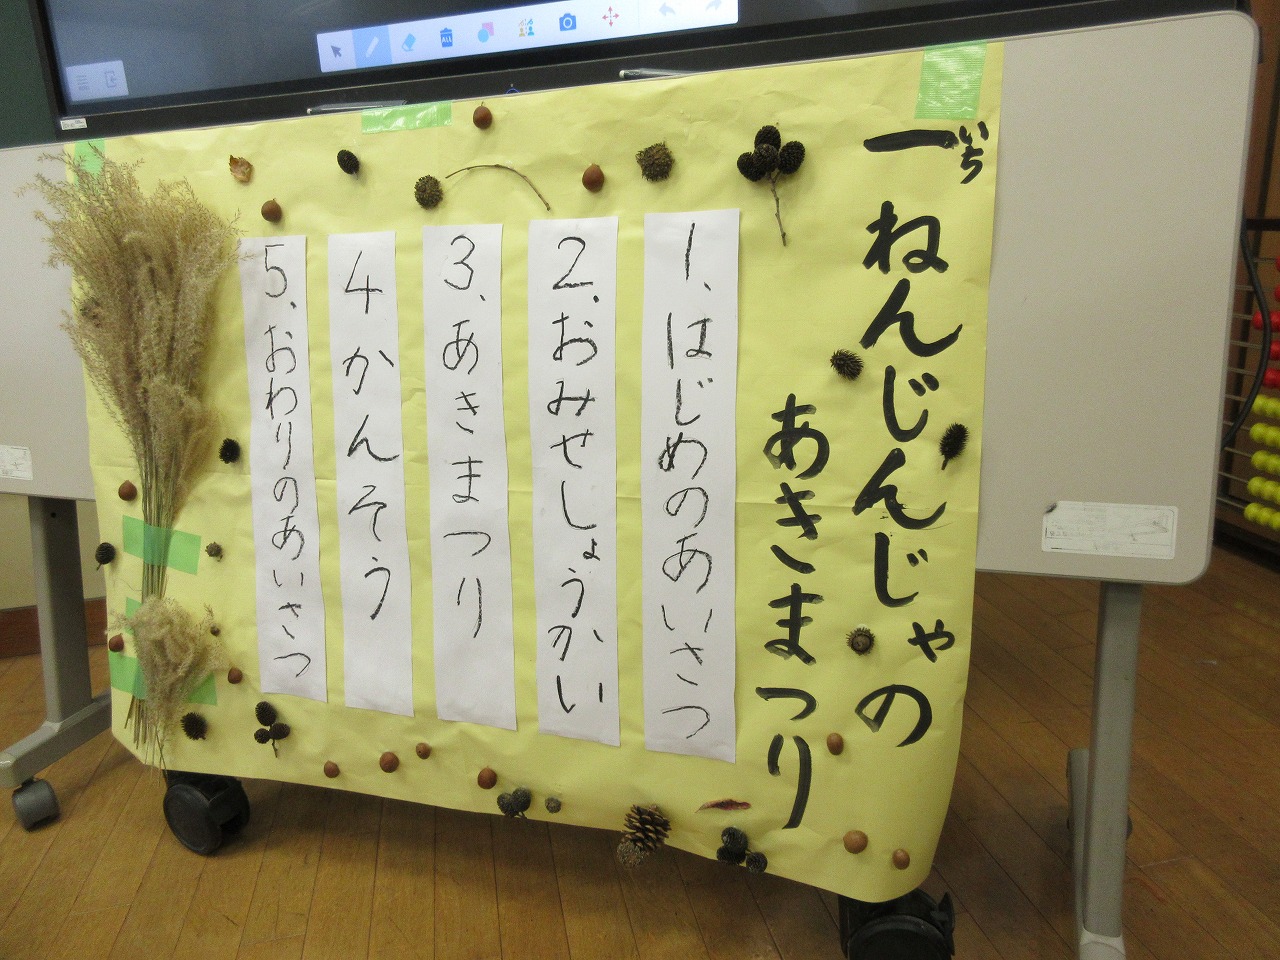 一ねんじんじゃの
いち
あきまつり
1、はじめのあいさつ
2、おみせしょうかい
3、あきまつり
4かんそう
5、おわりのあいさつ
ALL